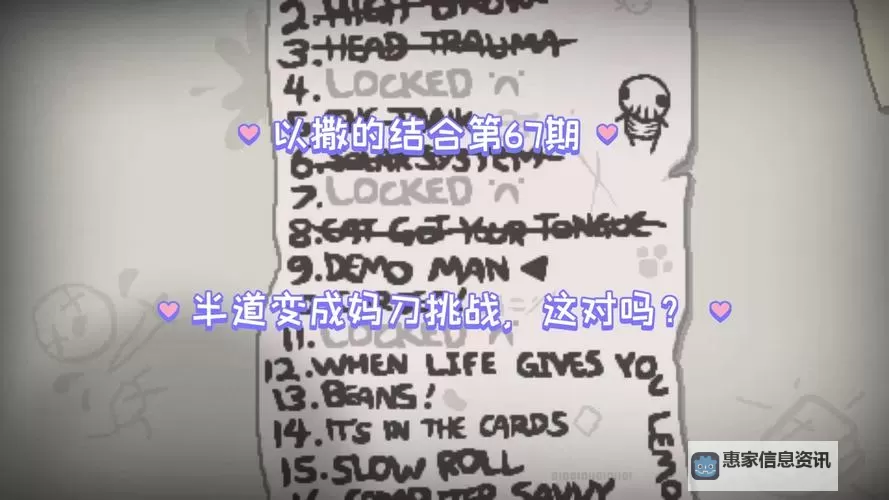 2. HIGH BROW
3. HEAD TRAUMA
4. LOCKED
5.
以撒的结合第67期
6. SOLAR SYSTEM
7. LOCKED
8. CAT GOT YOUR TONGUE
9. DEMO MAN
半道变成妈刀挑战，这对吗？
11. LOCKED
12. WHEN LIFE GIVES YOU LEMO
13. BEANS!
14. IT'S IN THE CARDS
15. SLOW ROLL
16. COMPUTER SAVVY
惠家信息资讯